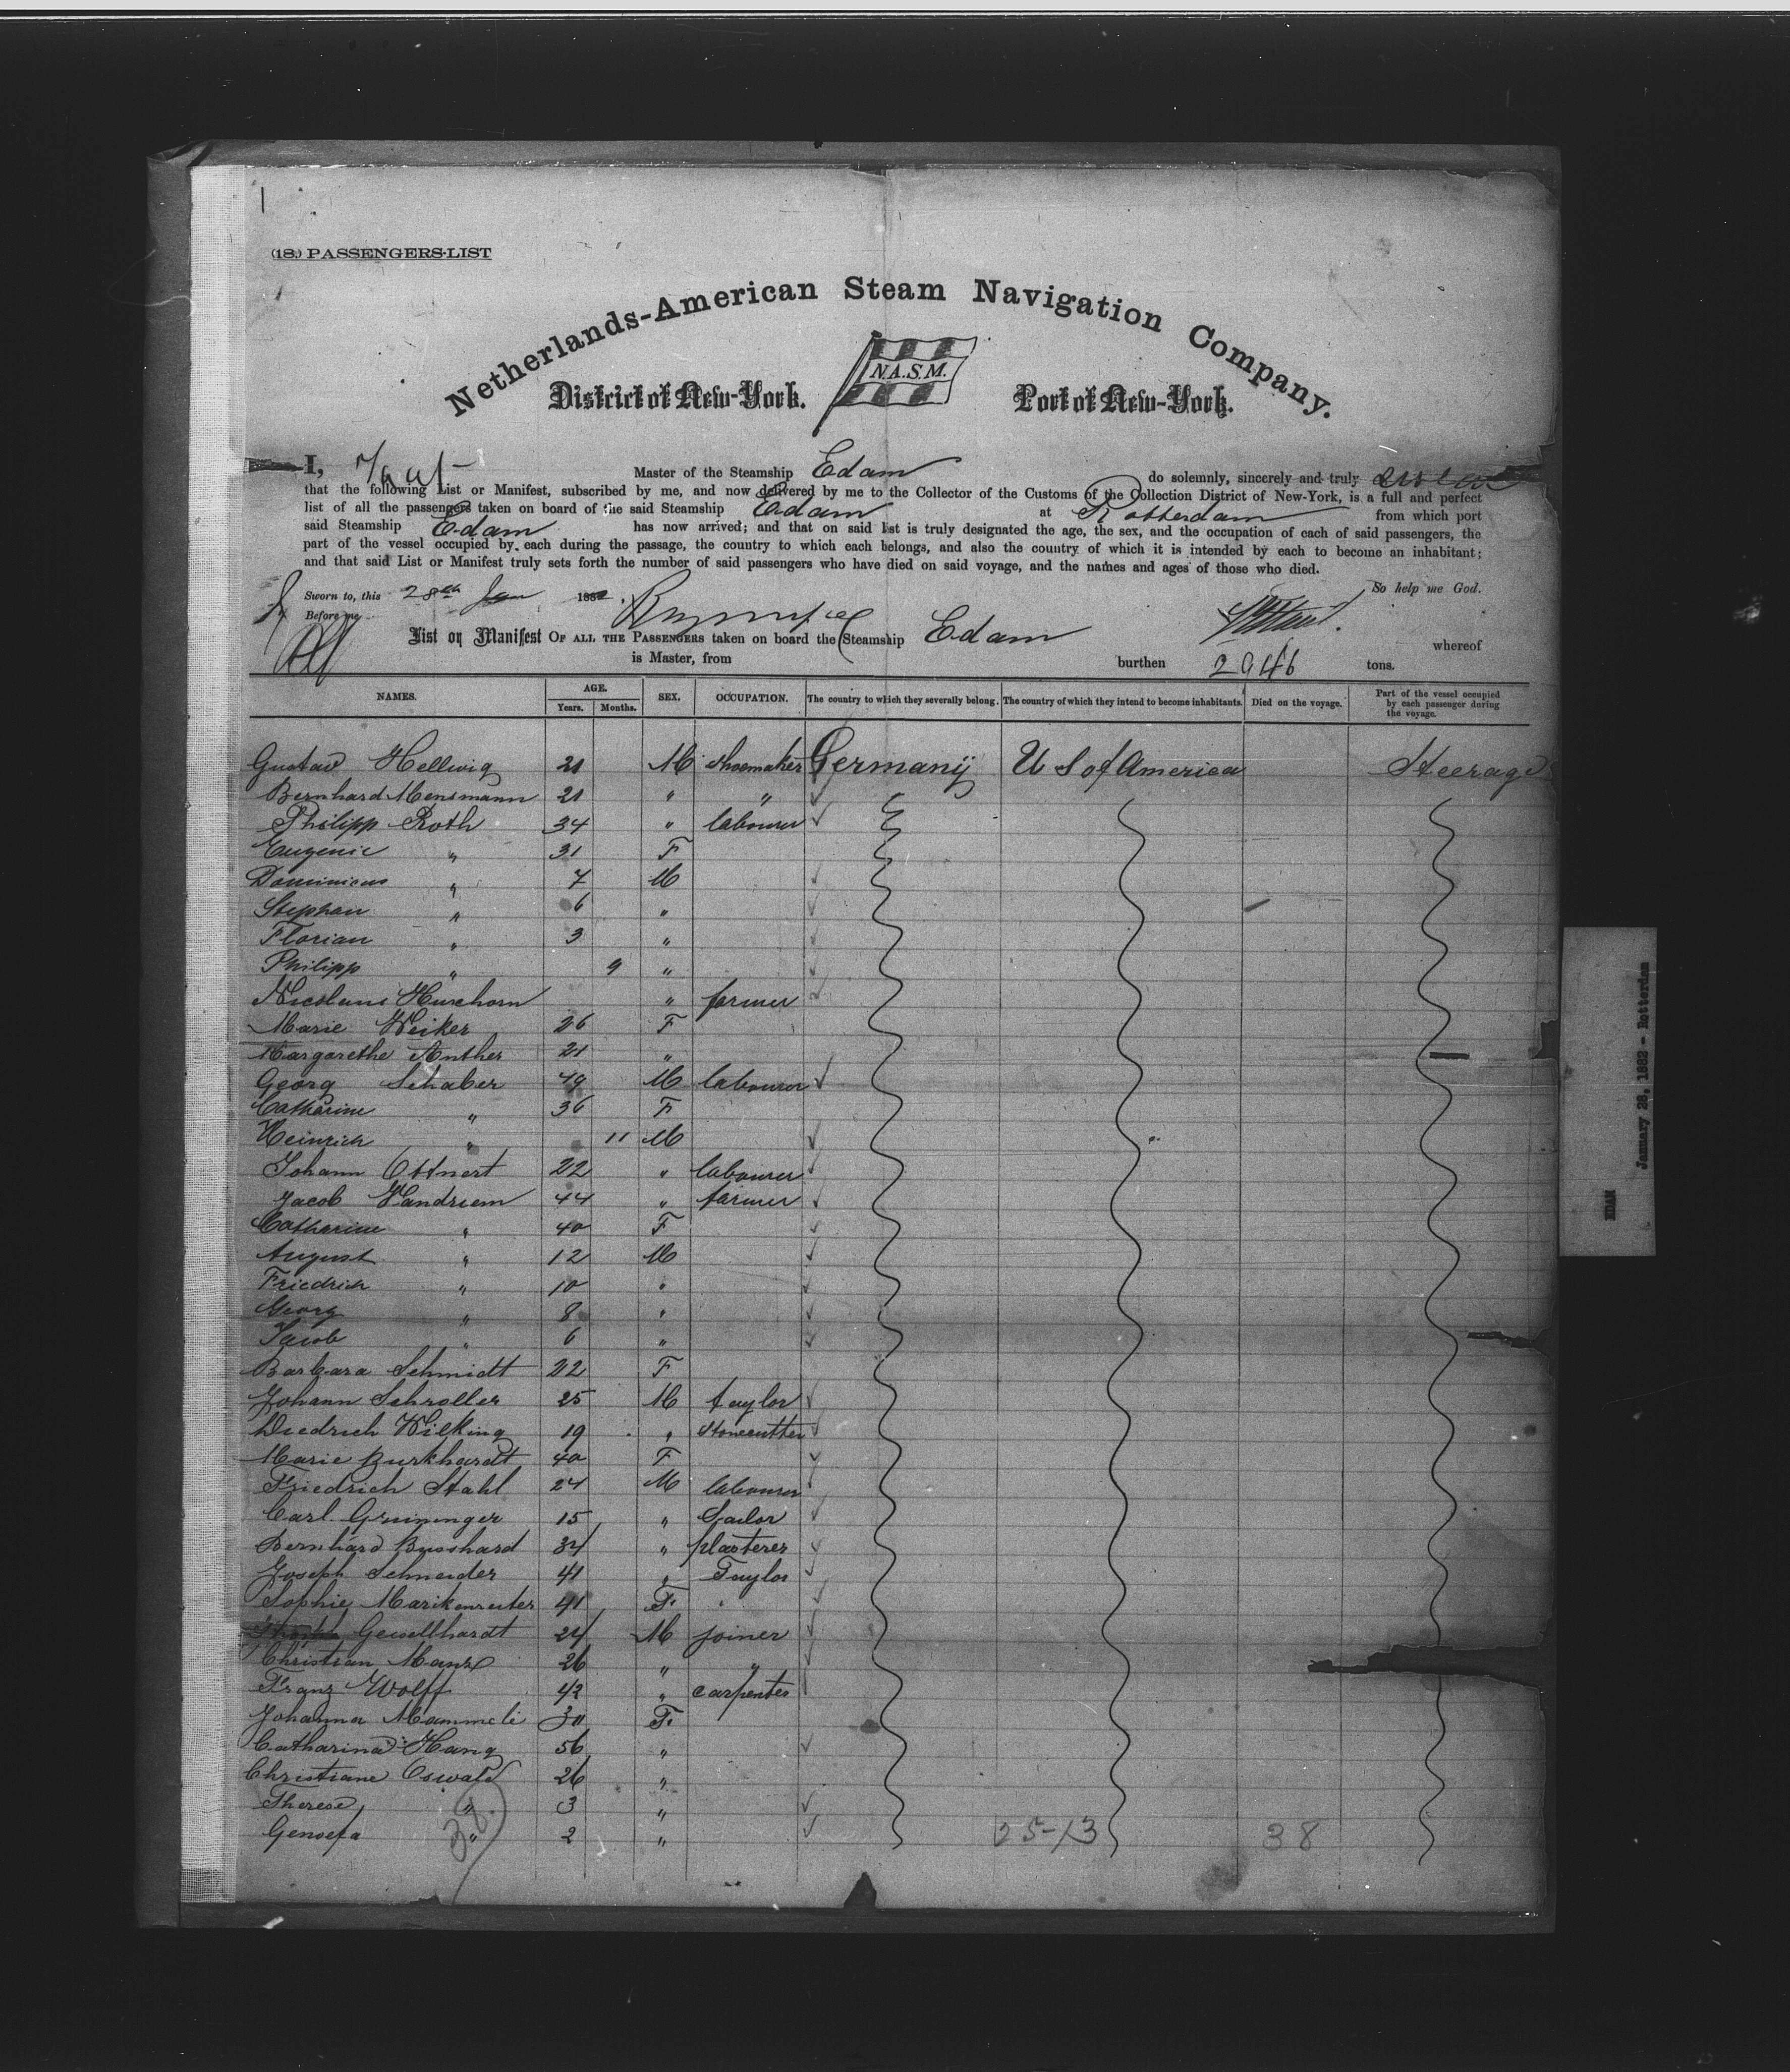 (18.) PASSENGERS-LIST
Netherlands-American Steam Navigation Company.
N.A.S.M.
District of New-York. Port of New-York.
I, Taut Master of the Steamship Edam do solemnly, sincerely and truly
that the following List or Manifest, subscribed by me, and now delivered by me to the Collector of the Customs of the Collection District of New-York, is a full and perfect
list of all the passengers taken on board of the said Steamship Edam at Rotterdam from which port
said Steamship Edam has now arrived; and that on said list is truly designated the age, the sex, and the occupation of each of said passengers, the
part of the vessel occupied by each during the passage, the country to which each belongs, and also the country of which it is intended by each to become an inhabitant;
and that said List or Manifest truly sets forth the number of said passengers who have died on said voyage, and the names and ages of those who died.
So help me God.
Sworn to, this 28th Jan 1882.
Before me
List or Manifest OF ALL THE PASSENGERS taken on board the Steamship Edam whereof
is Master, from burthen 2946 tons.
NAMES. AGE. Years. Months. SEX. OCCUPATION. The country to which they severally belong. The country of which they intend to become inhabitants. Died on the voyage. Part of the vessel occupied by each passenger during the voyage.
Gustav Hellwig 21 M Shoemaker Germany U S of America Steerage
Bernhard Mensmann 21 " "
Philipp Roth 34 " labourer
Eugenie " 31 F
Dominicus " 7 M
Stephan " 6 "
Florian " 3 "
Philipp " 9 "
Nicolaus " farmer
Marie Weiker 26 F
Margarethe Anther 21 "
Georg Schaber 49 M labourer
Catharine " 36 F
Heinrich " 11 M
Johann Ottnert 22 " labourer
Jacob Wandriem 44 " farmer
Catharine " 40 F
August " 12 M
Friedrich " 10 "
Georg " 8 "
Jacob " 6 "
Barbara Schmidt 22 F
Johann Schroller 25 M taylor
Diedrich Wilking 19 " Stonecutter
Marie Burkhardt 40 F
Friedrich Stahl 24 M labourer
Carl Gruninger 15 " Sailor
Bernhard Busshard 34 " plasterer
Joseph Schneider 41 " Taylor
Sophie Marikenreuter 41 F. "
Gewellhardt 24 M joiner
Christian Manz 26 " "
Franz Wolff 42 " carpenter
Johanna Mammele 30 F.
Catharina Hang 56 "
Christiane Oswald 26 "
Therese " 3 "
Genoefa " 2 "
38. 25-13 38
EDAM January 28, 1882 - Rotterdam